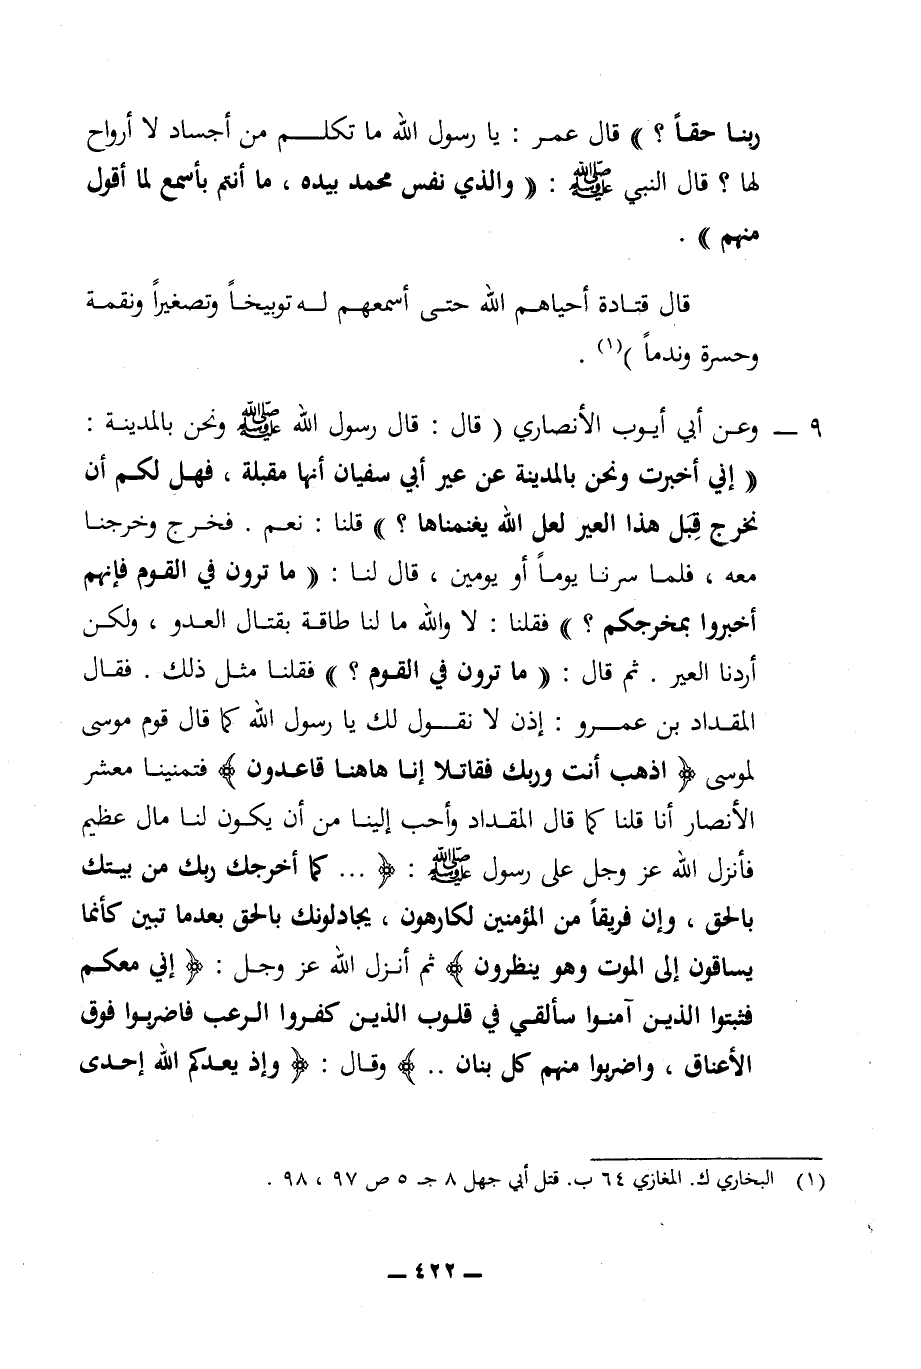 ربنا حقاً ؟ » قال عمر : يا رسول الله ما تكلم من أجساد لا أرواح
لها ؟ قال النبي ﷺ : « والذي نفس محمد بيده ، ما أنتم بأسمع لما أقول
منهم » .
قال قتادة أحياهم الله حتى أسمعهم له توبيخاً وتصغيراً ونقمة
وحسرة وندماً )(١) .
٩ ــ وعن أبي أيوب الأنصاري ( قال : قال رسول الله ﷺ ونحن بالمدينة :
« إني أخبرت ونحن بالمدينة عن عير أبي سفيان أنها مقبلة ، فهل لكم أن
نخرج قِبَل هذا العير لعل الله يغنمناها ؟ » قلنا : نعم . فخرج وخرجنا
معه ، فلما سرنا يوماً أو يومين ، قال لنا : « ما ترون في القوم فإنهم
أخبروا بمخرجكم ؟ » فقلنا : لا والله ما لنا طاقة بقتال العدو ، ولكن
أردنا العير . ثم قال : « ما ترون في القوم ؟ » فقلنا مثل ذلك . فقال
المقداد بن عمرو : إذن لا نقول لك يا رسول الله كما قال قوم موسى
لموسى ﴿ اذهب أنت وربك فقاتلا إنا هاهنا قاعدون ﴾ فتمنينا معشر
الأنصار أنا قلنا كما قال المقداد وأحب إلينا من أن يكون لنا مال عظيم
فأنزل الله عز وجل على رسول ﷺ : ﴿ ... كما أخرجك ربك من بيتك
بالحق ، وإن فريقاً من المؤمنين لكارهون ، يجادلونك بالحق بعدما تبين كأنما
يساقون إلى الموت وهو ينظرون ﴾ ثم أنزل الله عز وجل : ﴿ إني معكم
فثبتوا الذين آمنوا سألقي في قلوب الذين كفروا الرعب فاضربوا فوق
الأعناق ، واضربوا منهم كل بنان .. ﴾ وقال : ﴿ وإذ يعدكم الله إحدى
(١) البخاري ك. المغازي ٦٤ ب. قتل أبي جهل ٨ جـ ٥ ص ٩٧ ، ٩٨ .
ــ ٤٢٢ ــ